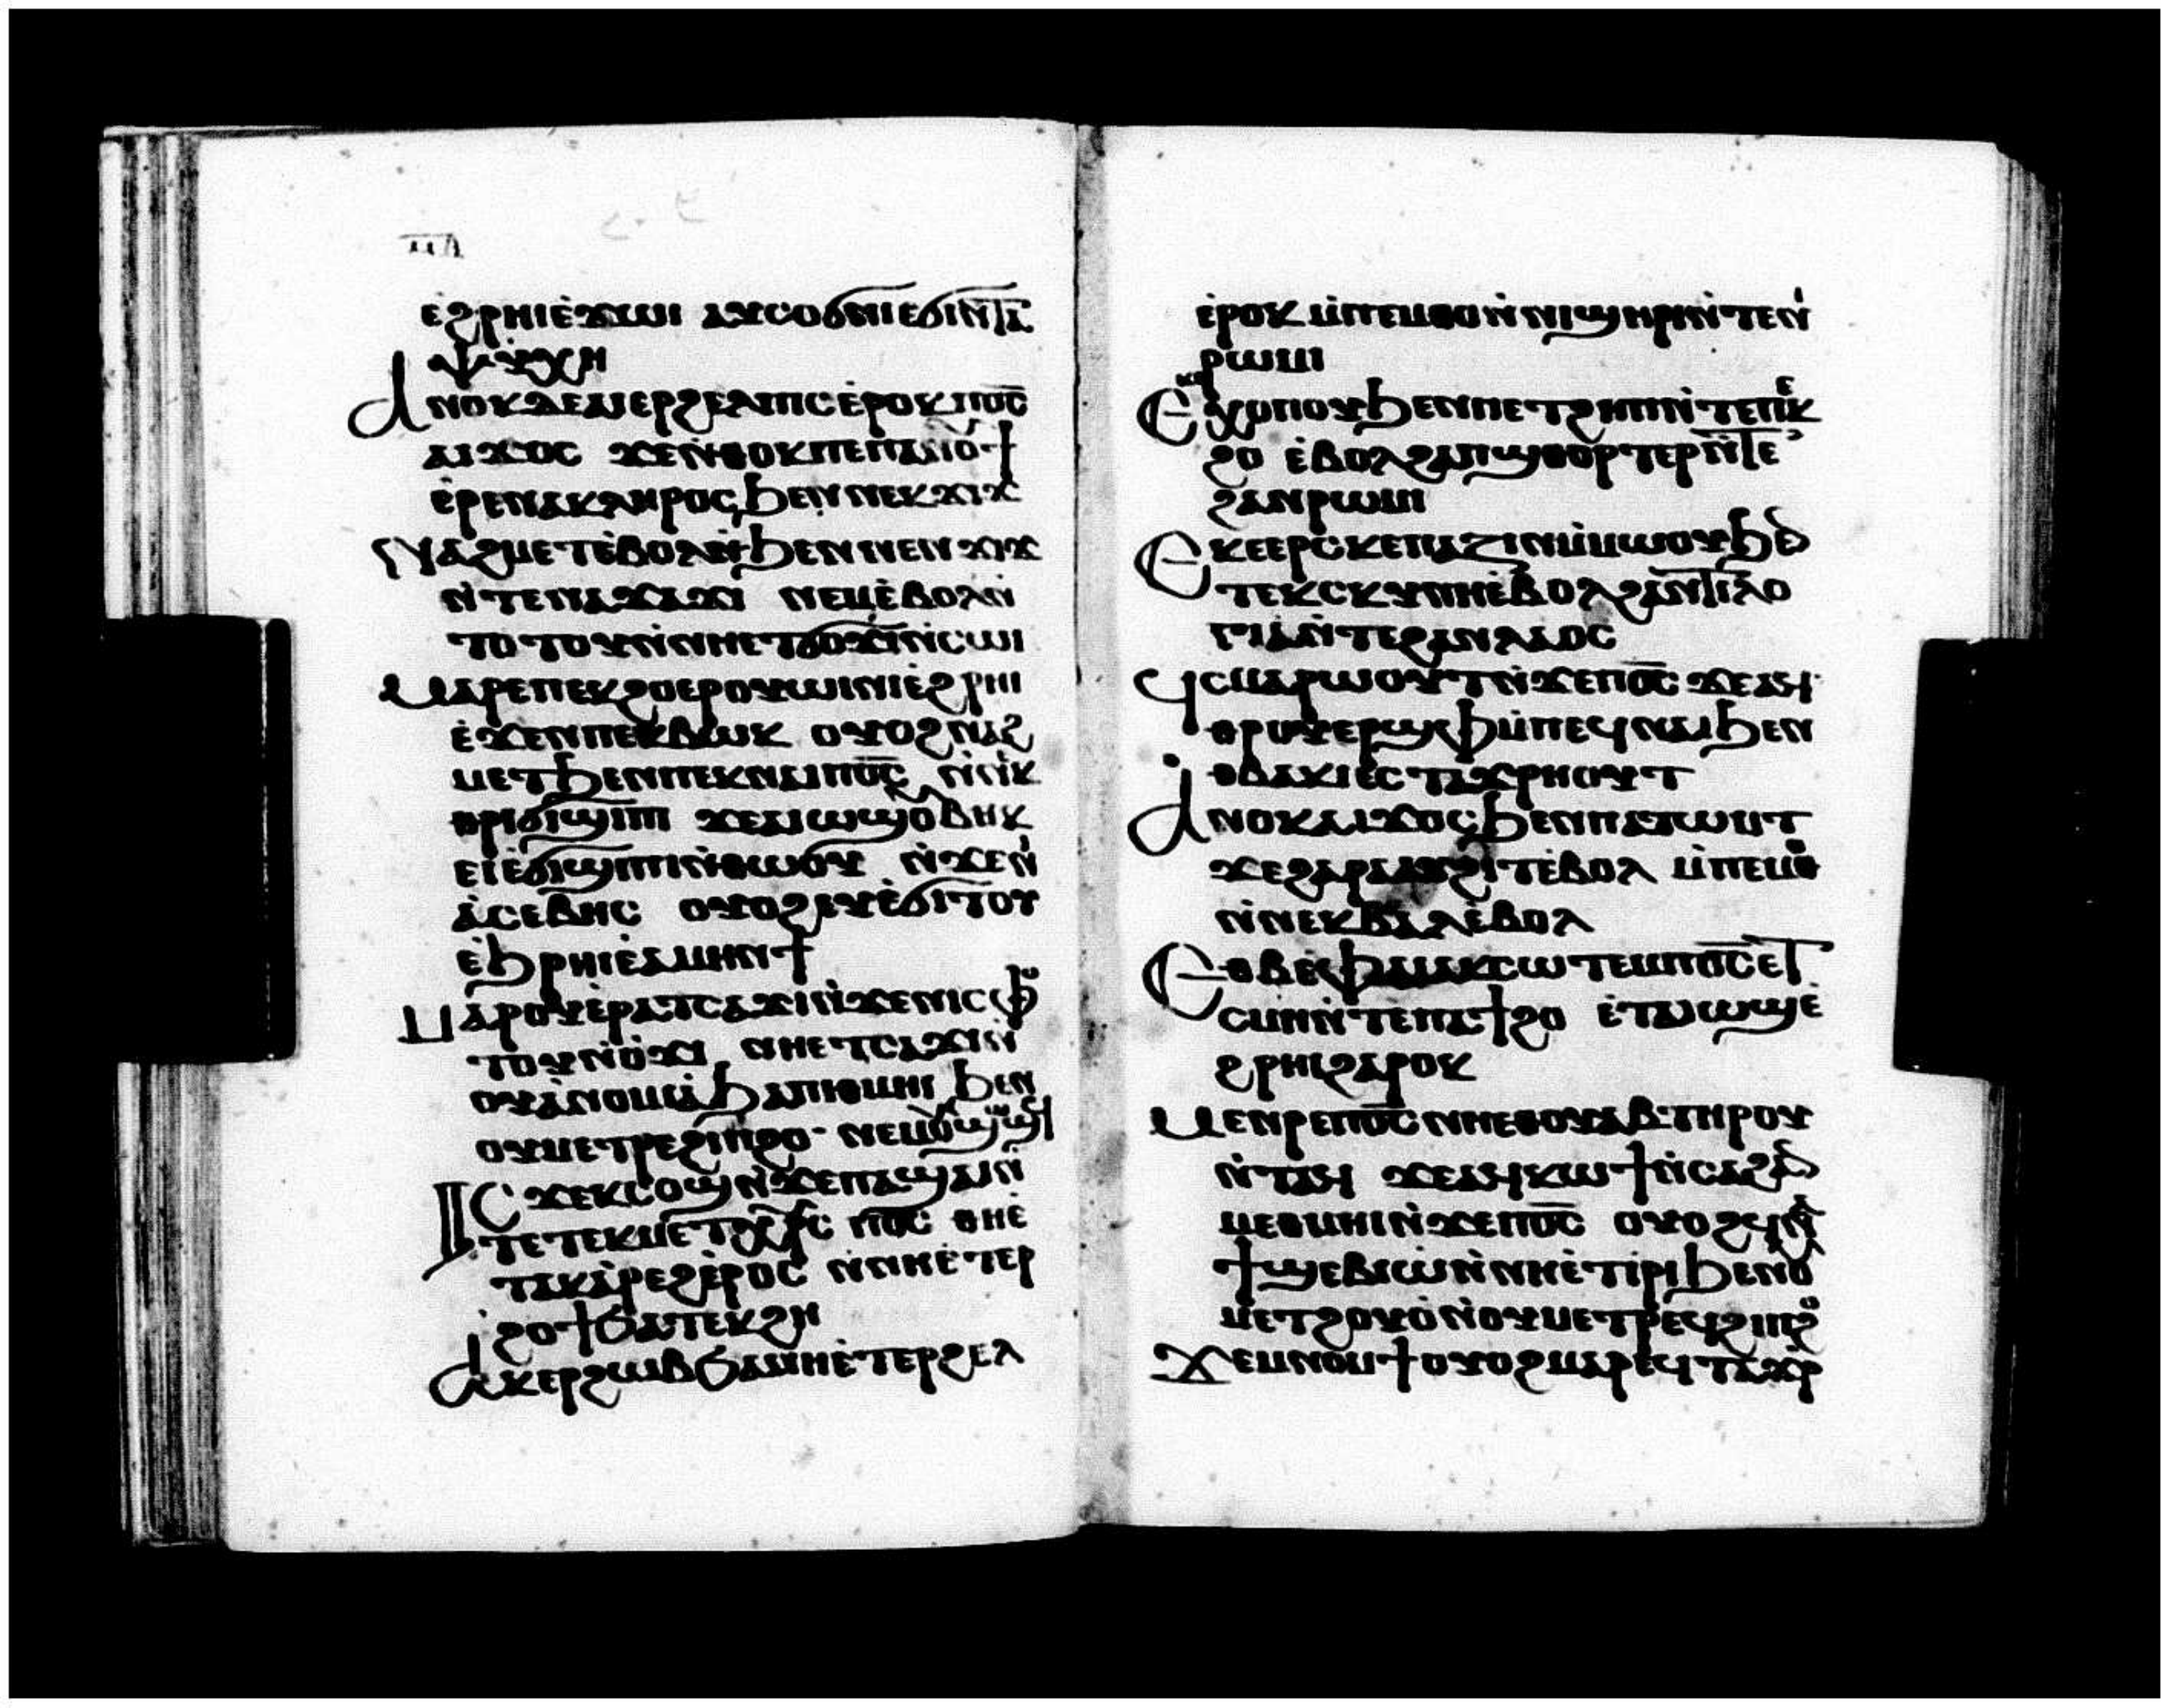 ⲉϩⲣⲏⲓⲉ̀ϫⲱⲓ ⲁⲩⲥⲟϭⲛⲓⲉϭⲓⲛ̀ⲧⲁ
ⲯⲩⲭⲏ
Ⲁⲛⲟⲕⲇⲉⲁⲓⲉⲣϩⲉⲗⲡⲓⲥⲉ̀ⲣⲟⲕ ⲡⲟ̅ⲥ̅
ⲁⲓϫⲟⲥ ϫⲉⲛ̀ⲑⲟⲕⲡⲉⲡⲁⲛⲟⲩϯ
ⲉ̀ⲣⲉⲛⲁⲕⲗⲏⲣⲟⲥ ϧⲉⲛ ⲛⲉⲕϫⲓϫ
Ⲛⲁϩⲙⲉⲧⲉ̀ⲃⲟⲗⲛ̀ϧⲉⲛⲛⲉⲛϫⲓϫ
ⲛ̀ⲧⲉⲛⲁϫⲁϫⲓ ⲛⲉⲙⲉ̀ⲃⲟⲗⲛ̀
ⲧⲟⲧⲟⲩⲛ̀ⲛⲏⲉⲧϭⲟϫⲓⲛ̀ⲥⲱⲓ
Ⲙⲁⲣⲉⲡⲉⲕϩⲟⲉⲣⲟⲩⲱⲓⲛⲓⲉ̀ϩⲣⲏⲓ
ⲉ̀ϫⲉⲛⲡⲉⲕⲃⲱⲕ ⲟⲩⲟϩⲛⲁϩ
ⲙⲉⲧϧⲉⲛⲡⲉⲕⲛⲁⲓⲡⲟ̅ⲥ̅ ⲛ̀ⲛⲉⲕ
ⲑⲣⲓϭⲓϣⲓⲡⲓ ϫⲉⲁⲓⲱϣⲟⲩⲃⲏⲕ
ⲉⲩⲉ̀ϭⲓϣⲓⲡⲓⲛ̀ⲑⲱⲟⲩ ⲛ̀ϫⲉⲛⲓ
ⲁ̀ⲥⲉⲃⲏⲥ ⲟⲩⲟϩⲉⲩⲉ̀ϭⲓⲧⲟⲩ
ⲉ̀ϧⲣⲏⲓⲉ̀ⲁⲙⲉⲛϯ
Ⲙⲁⲣⲟⲩⲉ̀ⲣⲁⲧⲥⲁϫⲓⲛ̀ϫⲉⲛⲓⲥⲫⲟ
ⲧⲟⲩⲛ̀ⲟ̀ϫⲓ ⲛⲏⲉⲧⲥⲁϫⲓⲛ̀
ⲟⲩⲁⲛⲟⲙⲓⲁ̀ϧⲁⲡⲓⲑⲙⲏⲓ ϧⲉⲛ
ⲟⲩⲙⲉⲧⲣⲉϩⲓⲡϩⲟ ⲛⲉⲙⲟⲩϣⲱϣϥ
Ⲓⲥ ϫⲉⲕⲥⲟϣⲛ̀ϫⲉⲡⲁϣⲁⲓⲛ̀
ⲧⲉⲧⲉⲕⲙⲉⲧⲭⲣⲥ ⲡⲟ̅ⲥ̅ ⲑⲏⲉ̀
ⲧⲁⲕⲁ̀ⲣⲉϩⲉ̀ⲣⲟⲥ ⲛ̀ⲛⲏⲉ̀ⲧⲉⲣ
ϩⲟϯϧⲁⲧⲉⲕϩⲏ
Ⲁⲕⲉⲣϩⲱⲃϧⲁⲛⲏⲉ̀ⲧⲉⲣϩⲉⲗ
ⲉ̀ⲣⲟⲕ ⲙ̀ⲡⲉⲙⲑⲟⲛ̀ⲛⲓϣⲏⲣⲓⲛ̀ⲧⲉⲛⲓ
ⲣⲱⲙⲓ
Ⲉⲕⲉⲭⲟⲡⲟⲩϧⲉⲛⲡⲉⲧϩⲏⲡⲛ̀ⲧⲉⲡⲉⲕ
ϩⲟ ⲉ̀ⲃⲟⲗϩⲁⲡϣⲑⲟⲣⲧⲉⲣⲛ̀ⲧⲉ
ϩⲁⲛⲣⲱⲙⲓ
Ⲉⲕⲉⲉⲣⲥⲕⲉⲡⲁⲍⲓⲛⲙ̀ⲙⲱⲟⲩϧⲉⲛ
ⲧⲉⲕⲥⲕⲩⲛⲏⲉ̀ⲃⲟⲗϩⲁⲛⲧⲓⲗⲟ
ⲅⲓⲁⲛ̀ⲧⲉϩⲁⲛⲗⲁⲟⲥ
Ϥⲥⲙⲁⲣⲱⲟⲩⲧⲛ̀ϫⲉⲡⲟ̅ⲥ̅ ϫⲉⲁϥ
ⲑⲣⲓⲩⲉⲣϣⲫⲙ̀ⲡⲉϥⲛⲁⲓϧⲉⲛ
ⲟⲃⲁⲕⲓⲉⲥⲧⲁϫⲣⲏⲟⲩⲧ
Ⲁⲛⲟⲕⲁⲓϫⲟⲥϧⲉⲛⲡⲁⲧⲱⲙⲧ
ϫⲉϩⲁⲣⲁⲁⲩϩⲓⲧⲉ̀ⲃⲟⲗ ⲙ̀ⲡⲉⲙⲑⲟ
ⲛ̀ⲛⲉⲕⲃⲁⲗⲉ̀ⲃⲟⲗ
Ⲉⲑⲃⲉⲫⲁⲓⲁⲕⲥⲱⲧⲉⲙⲡⲟ̅ⲥ̅ⲉ̀ⲧ
ⲥⲙⲏⲛ̀ⲧⲉⲡⲁϯϩⲟ ⲉ̀ⲧⲁⲓⲱϣⲉ̀
ϩⲣⲏⲓϩⲁⲣⲟⲕ
Ⲙⲉⲛⲣⲉⲡⲟ̅ⲥ̅ ⲛⲏⲉⲑⲟⲩⲁⲃⲧⲏⲣⲟⲩ
ⲛ̀ⲧⲁϥ ϫⲉⲁϥⲕⲱϯⲛ̀ⲥⲁϩⲁⲛ
ⲙⲉⲑⲙⲏⲓⲛ̀ϫⲉⲡⲟ̅ⲥ̅ ⲟⲩⲟϩϥⲛⲁ
ϯϣⲉⲃⲓⲱⲛ̀ⲛⲏⲉ̀ⲧⲓⲣⲓϧⲉⲛⲟⲩ
ⲙⲉⲧϩⲟⲩⲟ̀ⲛ̀ⲟⲩⲙⲉⲧⲣⲉϥϩⲓⲡϩⲟ
Ϫⲉⲙⲛⲟⲙϯⲟⲩⲟϩⲙⲁⲣⲉϥⲧⲁϫⲣ